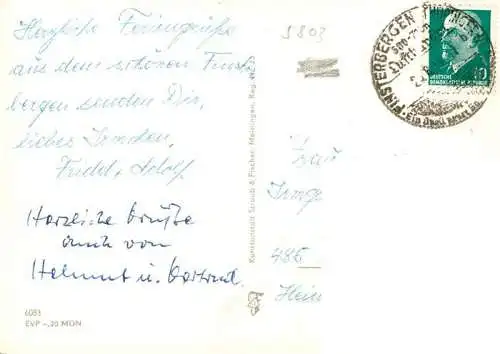 Herzliche Feriengrüße
aus dem schönen Finster
bergen senden Dir,
liebes
Friedel + Adolf
Herzliche Grüße
auch von
Helmut u. Gertrud.
6083
EVP –,20 MDN
Kunstanstalt Straub & Fischer, Meiningen, Reg.
5803
FINSTERBERGEN
DEUTSCHE
DEMOKRATISCHE REPUBLIK
10
Frau
Irmg
485
Hein